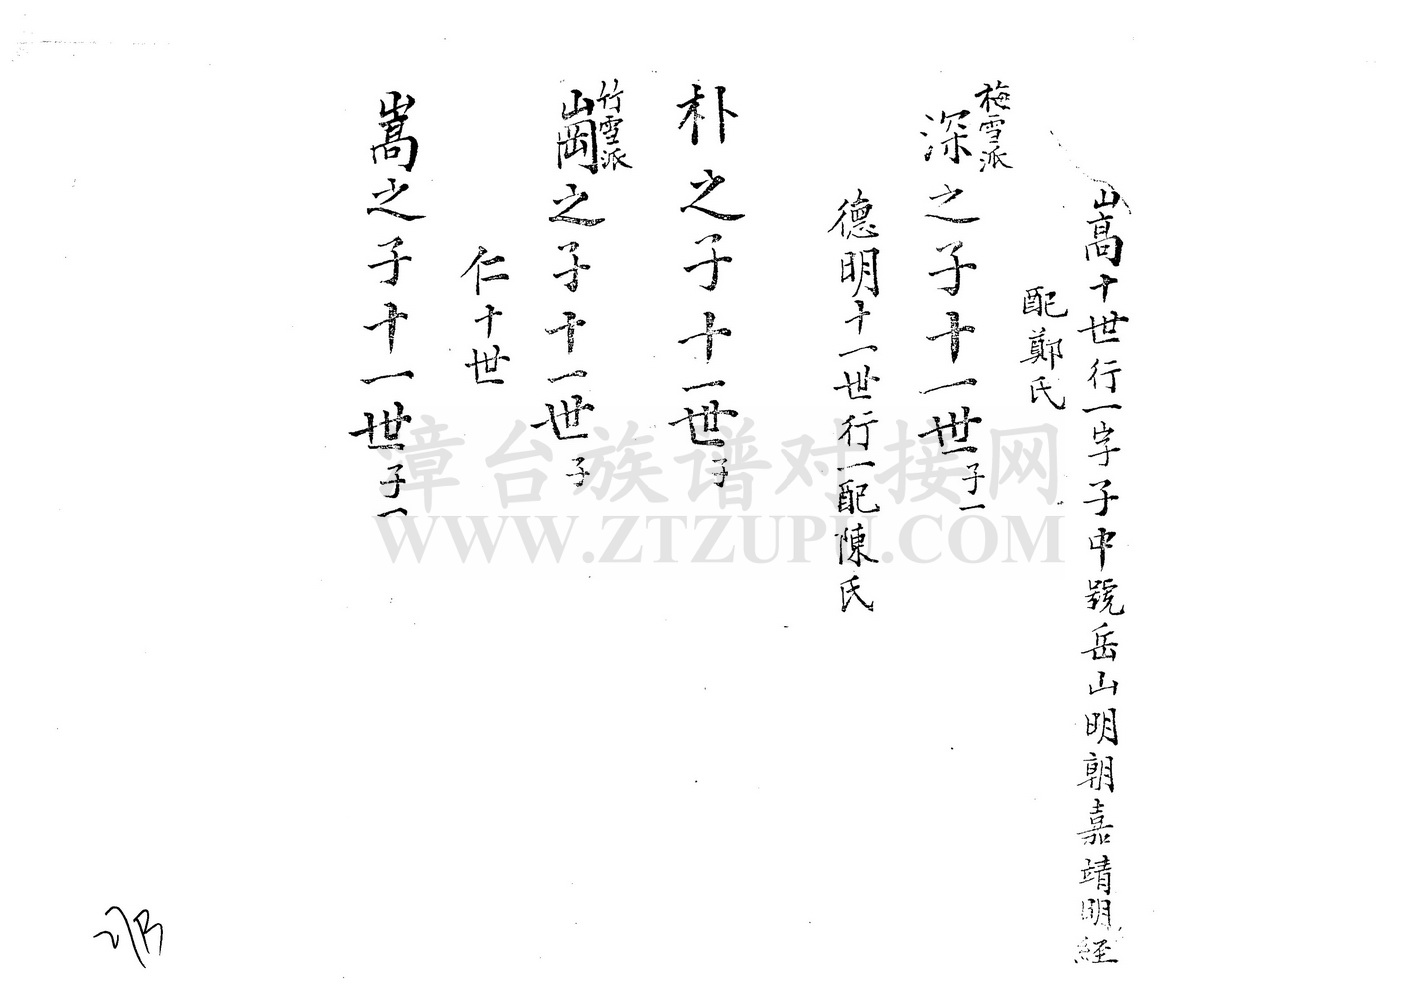 嵩十世行一字子中號岳山明朝嘉靖明経
配鄭氏
梅雪派
深之子十一世子一
德明十一世行一配陳氏
朴之子十一世子
竹雪派
崗之子十一世子
仁十世
嵩之子十一世子一
章台族谱对接网
WWW.ZTZUPU.COM